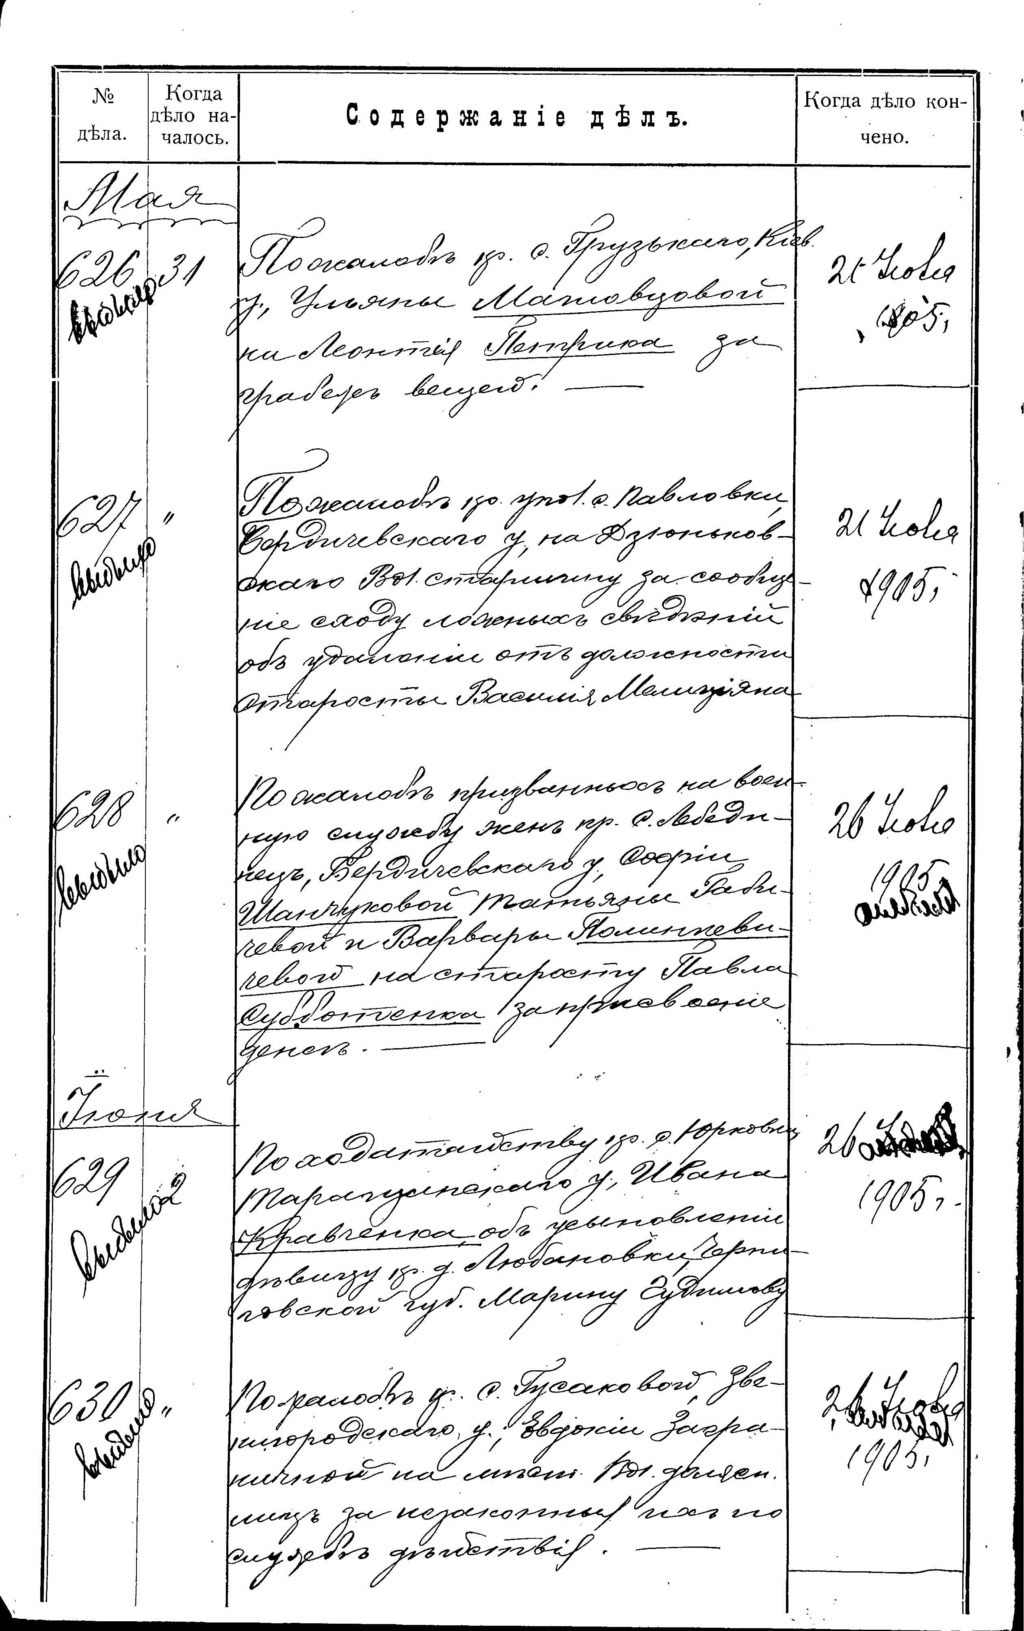 № дѣла.
Когда дѣло на-чалось.
Содержаніе дѣлъ.
Когда дѣло кон-чено.
Мая
626 31
выбыло
По жалобѣ кр. с. Грузькаго, Кіев.
у., Ульяны Матовцовой
на Леонтія Петрика за
грабежъ вещей.
21 Іюня
1905 г.
627 "
выбыло
По жалобѣ кр. упол. с. Павловки,
Бердичевскаго у, на Дзюньков-
скаго Вол. старшину за сообще-
ніе сходу ложныхъ свѣдѣній
объ удаленіи отъ должности
старосты Василія
21 Іюня
1905 г.
628 "
выбыло
По жалобѣ призванныхъ на воен-
ную службу женъ кр. с. Лебеди-
нецъ, Бердичевскаго у, Софіи
Шанчуковой Татьяны Габи-
чевой и Варвары Полинкеви-
чевой на старосту Павла
Субботенка за присвоеніе
денегъ.
26 Іюня
1905
выбыло
Іюня
629 2
выбыло
По ходатайству кр. с. Юрковки
Таращанскаго у., Ивана
Кравченка, объ усыновленіи
дѣвицу кр. д. Любановки, Черни-
говской губ. Марину Гудимову
26
1905 г.
630 "
выбыло
По жалобѣ кр. с. Гусаковой, Зве-
нигородскаго у., Евдокіи Загра-
ничной на мѣст. Вол. должн.
лицъ за незаконныя ихъ по
службѣ дѣйствія.
26 Іюня
1905 г.